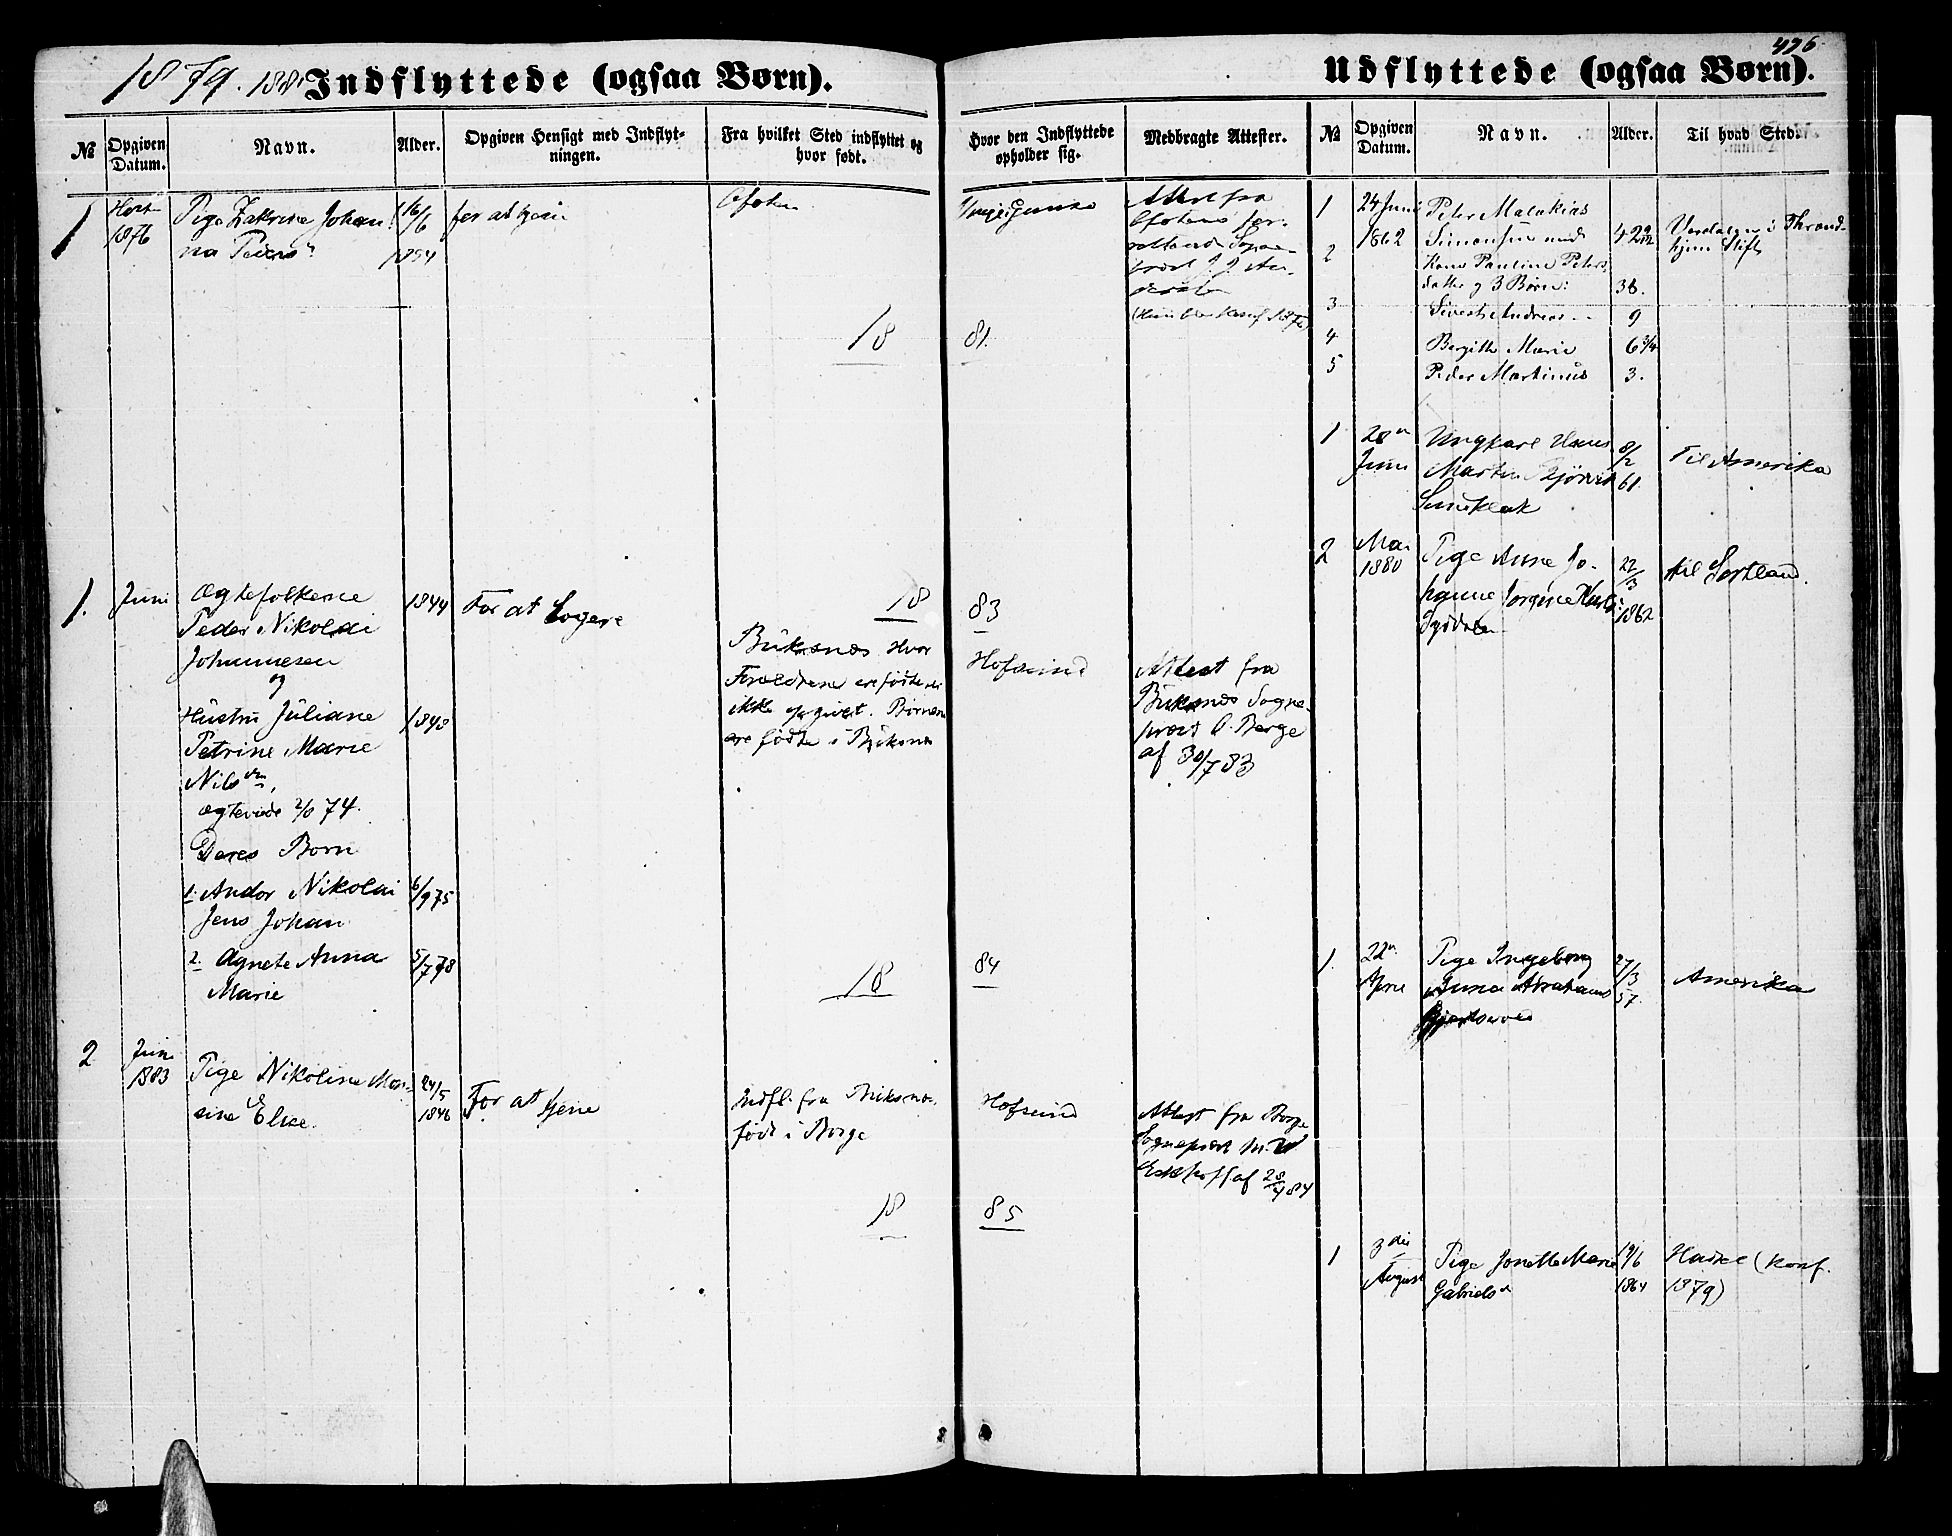 476
1879. 1881 Indflyttede (ogsaa Børn).
№
Opgiven Datum.
Navn.
Alder.
Opgiven Hensigt med Indflytningen.
Fra hvilket Sted indflyttet og hvor født.
1
Høst 1876
Pige Johan
na
16/6
1854
for at tjene
Ofoten
18
1.
Juni
Ægtefolkene
Peder Nikolai
Johannesen
og
Hustru Juliane
Petrine Marie
Nils
ægteviede 74.
Deres Børn
1. Andor Nikolai
Jens Johan
2. Agnete Anna
Marie
1844
1848
6/9 75
5/7 78
For at Logere
18
Buksnæs Hvor
Forældrene ere fødte er
ikke opgivet. Børnene
ere fødte i Buksnæs
18
2
Juni
1883
Pige Nikoline Mar-
sine Elise.
24/5
1846
For at tjene
Indfl. fra Buksnæs.
født i Borge
18
Udflyttede (ogsaa Børn).
Hvor den Indflyttede opholder sig.
Medbragte Attester.
№
Opgiven Datum.
Navn.
Alder.
Til hvad Sted.
Attest fra
Ofotens
81.
83
Hofsund
Attest fra
Buksnæs Sogne-
præst O. Berge
af 30/7 83
84
Hofsund
Attest fra Borge
Sognepræst
af 28/4 84
85
1
24 Juni
1862
Peter Malakias
Simonsen med
2
Kone Pauline Peters
datter og 3 Børn:
36.
3
Andreas
9
4
Bergitte Marie
6 3/4
5
Peder Martinus
3.
Værdalen i Thrond-
hjem Stift
1
28
Juni
Ungkarl Hans
Martin
8/2
61.
Til Amerika
2
Mai
1880
Pige Anne Jo-
hanne Jorgine
22/3
1862
til Sortland.
1.
22
April
Pige Ingeborg
Anna Abrahams
27/3
57.
Amerika
1
3die
August
Pige Jonette Marie
Gabriels
19/6
1864
Hadsel (Konf.
1879)